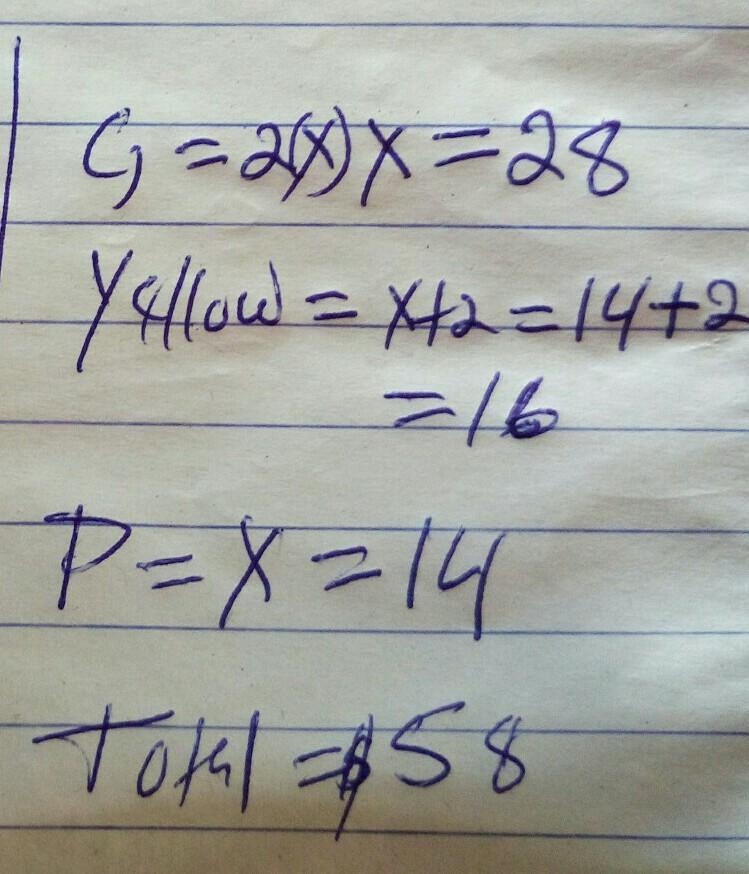 G = 2(x) x = 28
Yellow = x+2 = 14+2
= 16
P = x = 14
Total = $58